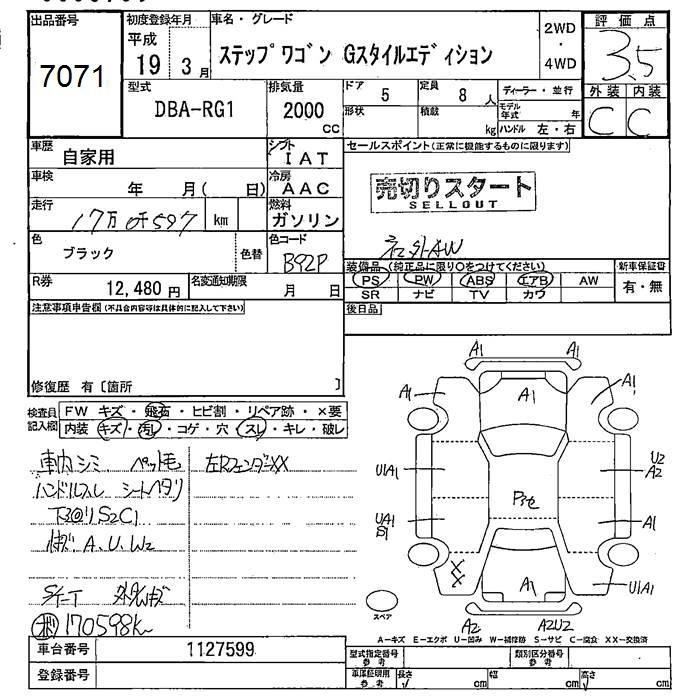 出品番号
7071
初度登録年月
平成
19 3 月
車名・グレード
ステップワゴン Gスタイルエディション
2WD
・
4WD
評価点
3.5
外装 内装
C C
型式
DBA-RG1
排気量
2000
cc
ドア 5
定員 8 人
形状
積載
kg
ディーラー・並行
モデル年式 年
ハンドル 左・右
車歴
自家用
シフト
IAT
車検
年 月( 日)
冷房
AAC
走行
km
燃料
ガソリン
色
ブラック
色替
色コード
B92P
R券
12,480 円
名変通知期限
月 日
セールスポイント(正常に機能するものに限ります)
売切りスタート
SELLOUT
社外AW
装備品(純正品に限り○をつけてください)
PS PW ABS エアB AW
SR ナビ TV カワ
新車保証書
有・無
後日品
注意事項申告欄(不具合内容等は具体的に記入して下さい)
修復歴 有〔箇所 〕
検査員
記入欄
FW キズ・飛石・ヒビ割・リペア跡・×要
内装 キズ・汚レ・コゲ・穴・スレ・キレ・破レ
車内シミ ペット毛 左RフェンダーXX
ハンドルスレ シートヘタリ
下回りS2C1
A.U.W2
170598K
A1 A1
A1 A1 A1
U1A1
U2
A2
U1A1
S1
A1
XX
A1
U1A1
A2 A2U2
スペア
A-キズ E-エクボ U-凹み W-補修跡 S-サビ C-腐食 XX-交換済
車台番号
1127599
登録番号
型式指定番号
参考
類別区分番号
参考
車庫証明用
参考
長さ cm 幅 cm 高さ cm